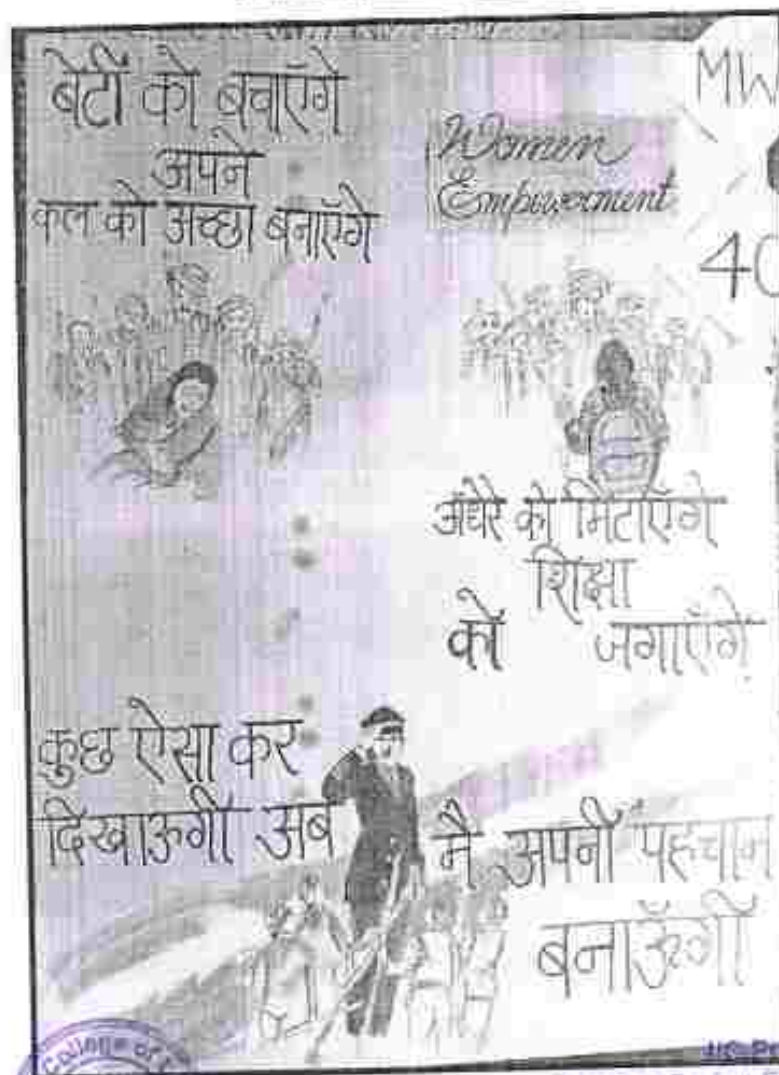 बेटी को बचाएँगे
अपने
कल को अच्छा बनाएँगे
Women
Empowerment
40
अंधेरे को मिटाएँगे
शिक्षा
को जगाएँगे
कुछ ऐसा कर
दिखाऊगीं अब
मै अपनी पहचान
बनाऊँगीं
College of